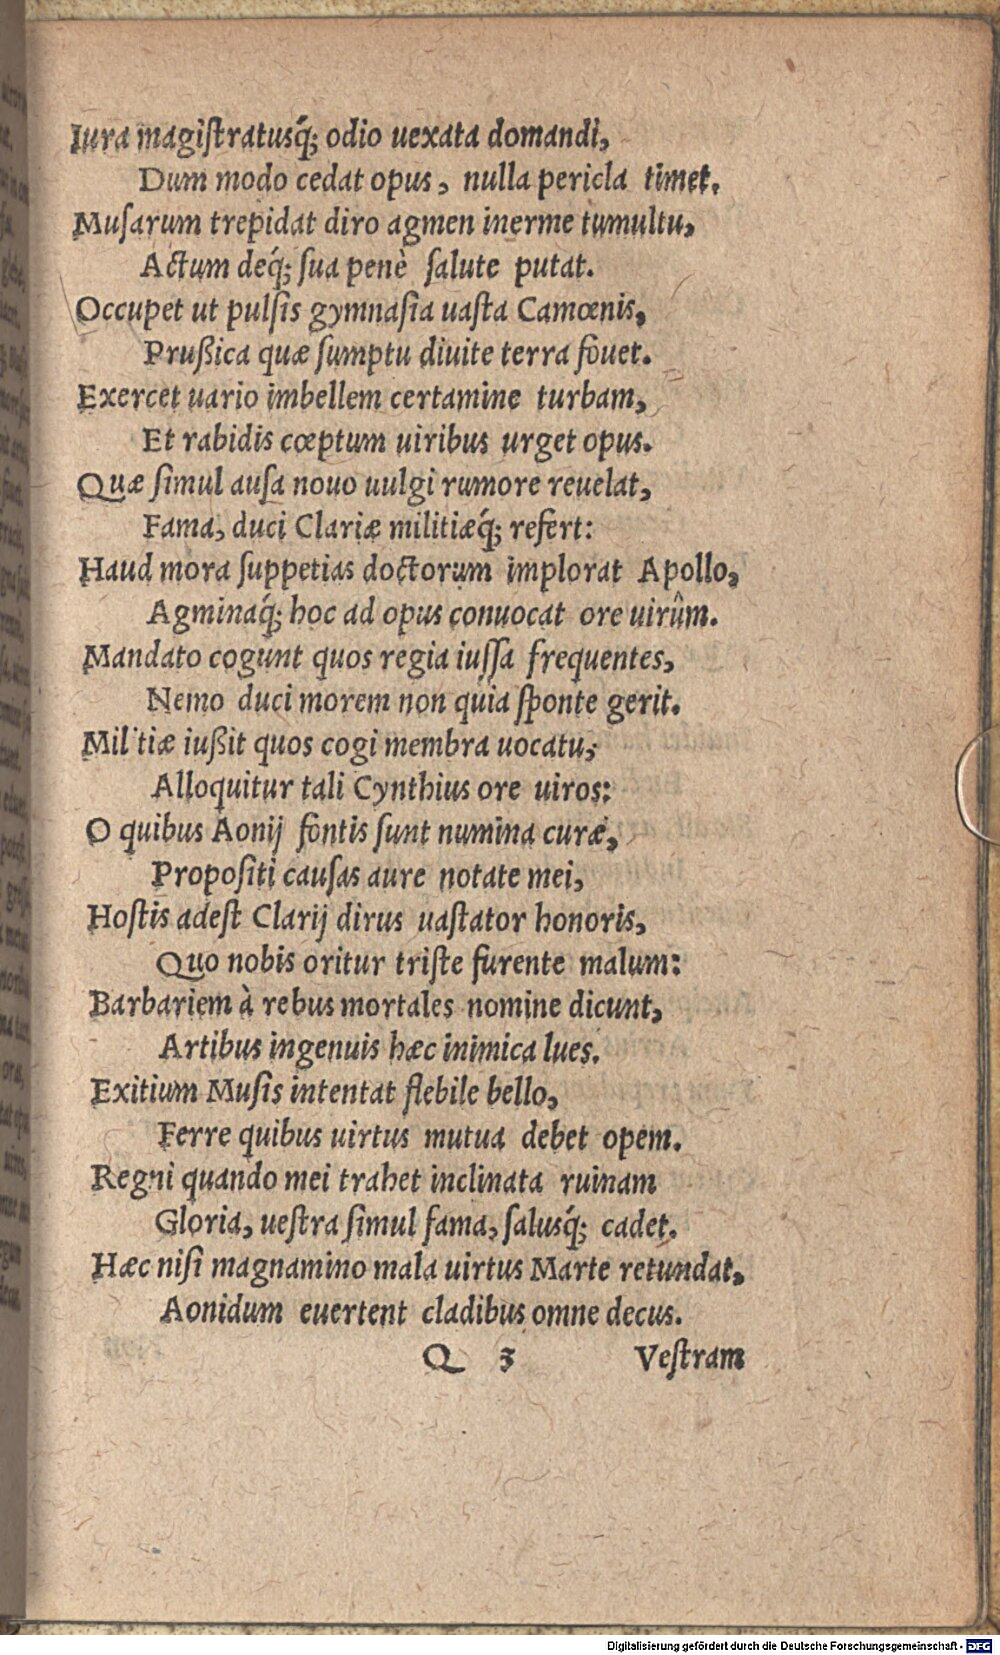 Iura magiſtratusq́; odio uexata domandi,
Dum modo cedat opus, nulla pericla timet.
Muſarum trepidat diro agmen inerme tumultu,
Actum deq́; ſua penè ſalute putat.
Occupet ut pulſis gymnaſia uaſta Camœnis,
Prußica quæ ſumptu diuite terra fouet.
Exercet uario imbellem certamine turbam,
Et rabidis cœptum uiribus urget opus.
Quæ ſimul auſa nouo uulgi rumore reuelat,
Fama, duci Clariæ militiæq́; refert:
Haud mora ſuppetias doctorum implorat Apollo,
Agminaq́; hoc ad opus conuocat ore uirûm.
Mandato cogunt quos regia iuſſa frequentes,
Nemo duci morem non quia ſponte gerit.
Militiæ iußit quos cogi membra uocatu,
Alloquitur tali Cynthius ore uiros:
O quibus Aonij fontis ſunt numina curæ,
Propoſiti cauſas aure notate mei,
Hoſtis adeſt Clarij dirus uaſtator honoris,
Quo nobis oritur triſte furente malum:
Barbariem à rebus mortales nomine dicunt,
Artibus ingenuis hæc inimica lues.
Exitium Muſis intentat flebile bello,
Ferre quibus uirtus mutua debet opem.
Regni quando mei trahet inclinata ruinam
Gloria, ueſtra ſimul fama, ſalusq́; cadet.
Hæc niſi magnamino mala uirtus Marte retundat,
Aonidum euertent cladibus omne decus.
Q 3 Veſtram
Digitalisierung gefördert durch die Deutsche Forschungsgemeinschaft - DFG